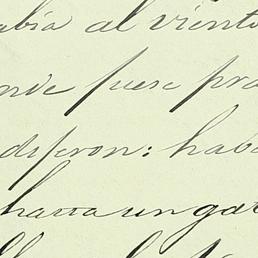 abia al viento
nde fuese pra
dijeron: hab
hasta un gat